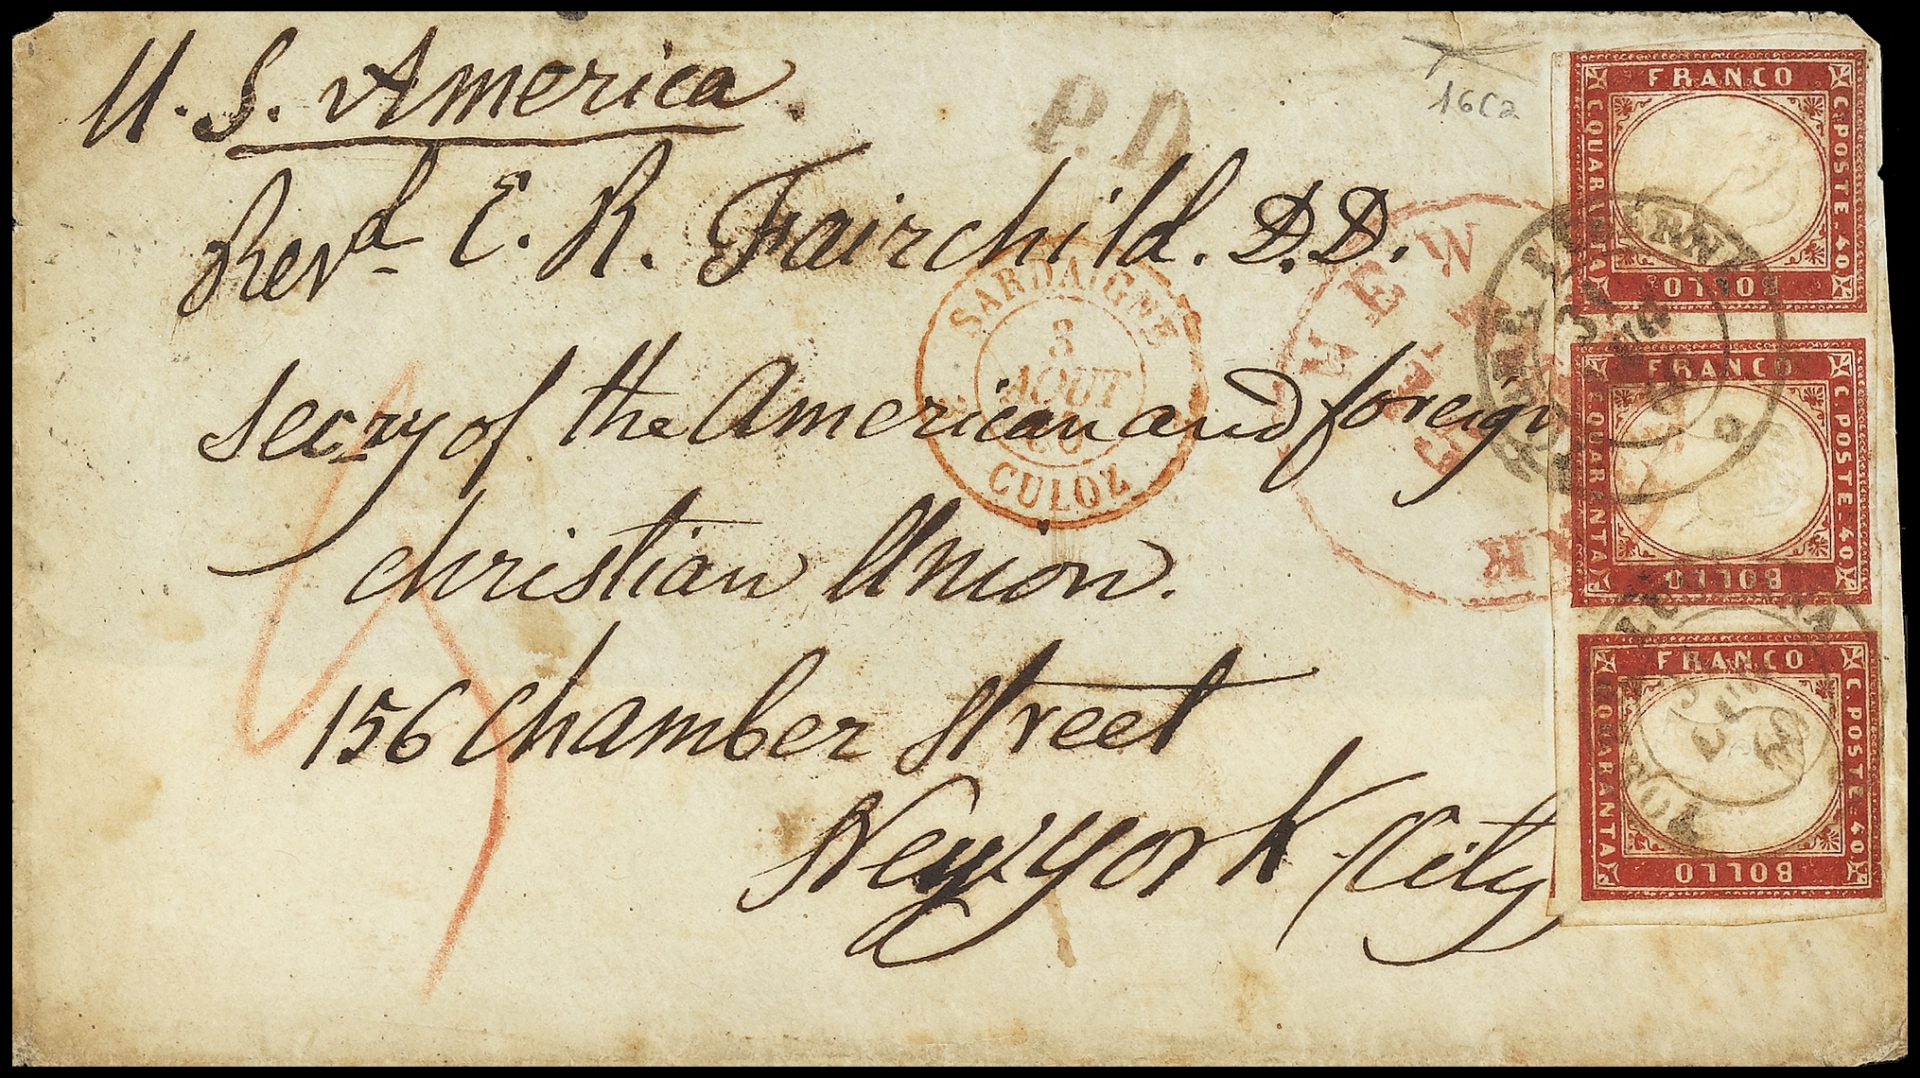 U. S. America.
P.D.
16C2
Revd. E. R. Fairchild. D.D.
Secry of the American and foreign
Christian Union.
156 Chamber Street
New York City
SARDAIGNE
3
AOUT
60
CULOZ
NEW
FRANCO
C. POSTE. 40
BOLLO
C. QUARANTA
FRANCO
C. POSTE. 40
BOLLO
C. QUARANTA
FRANCO
C. POSTE. 40
BOLLO
C. QUARANTA